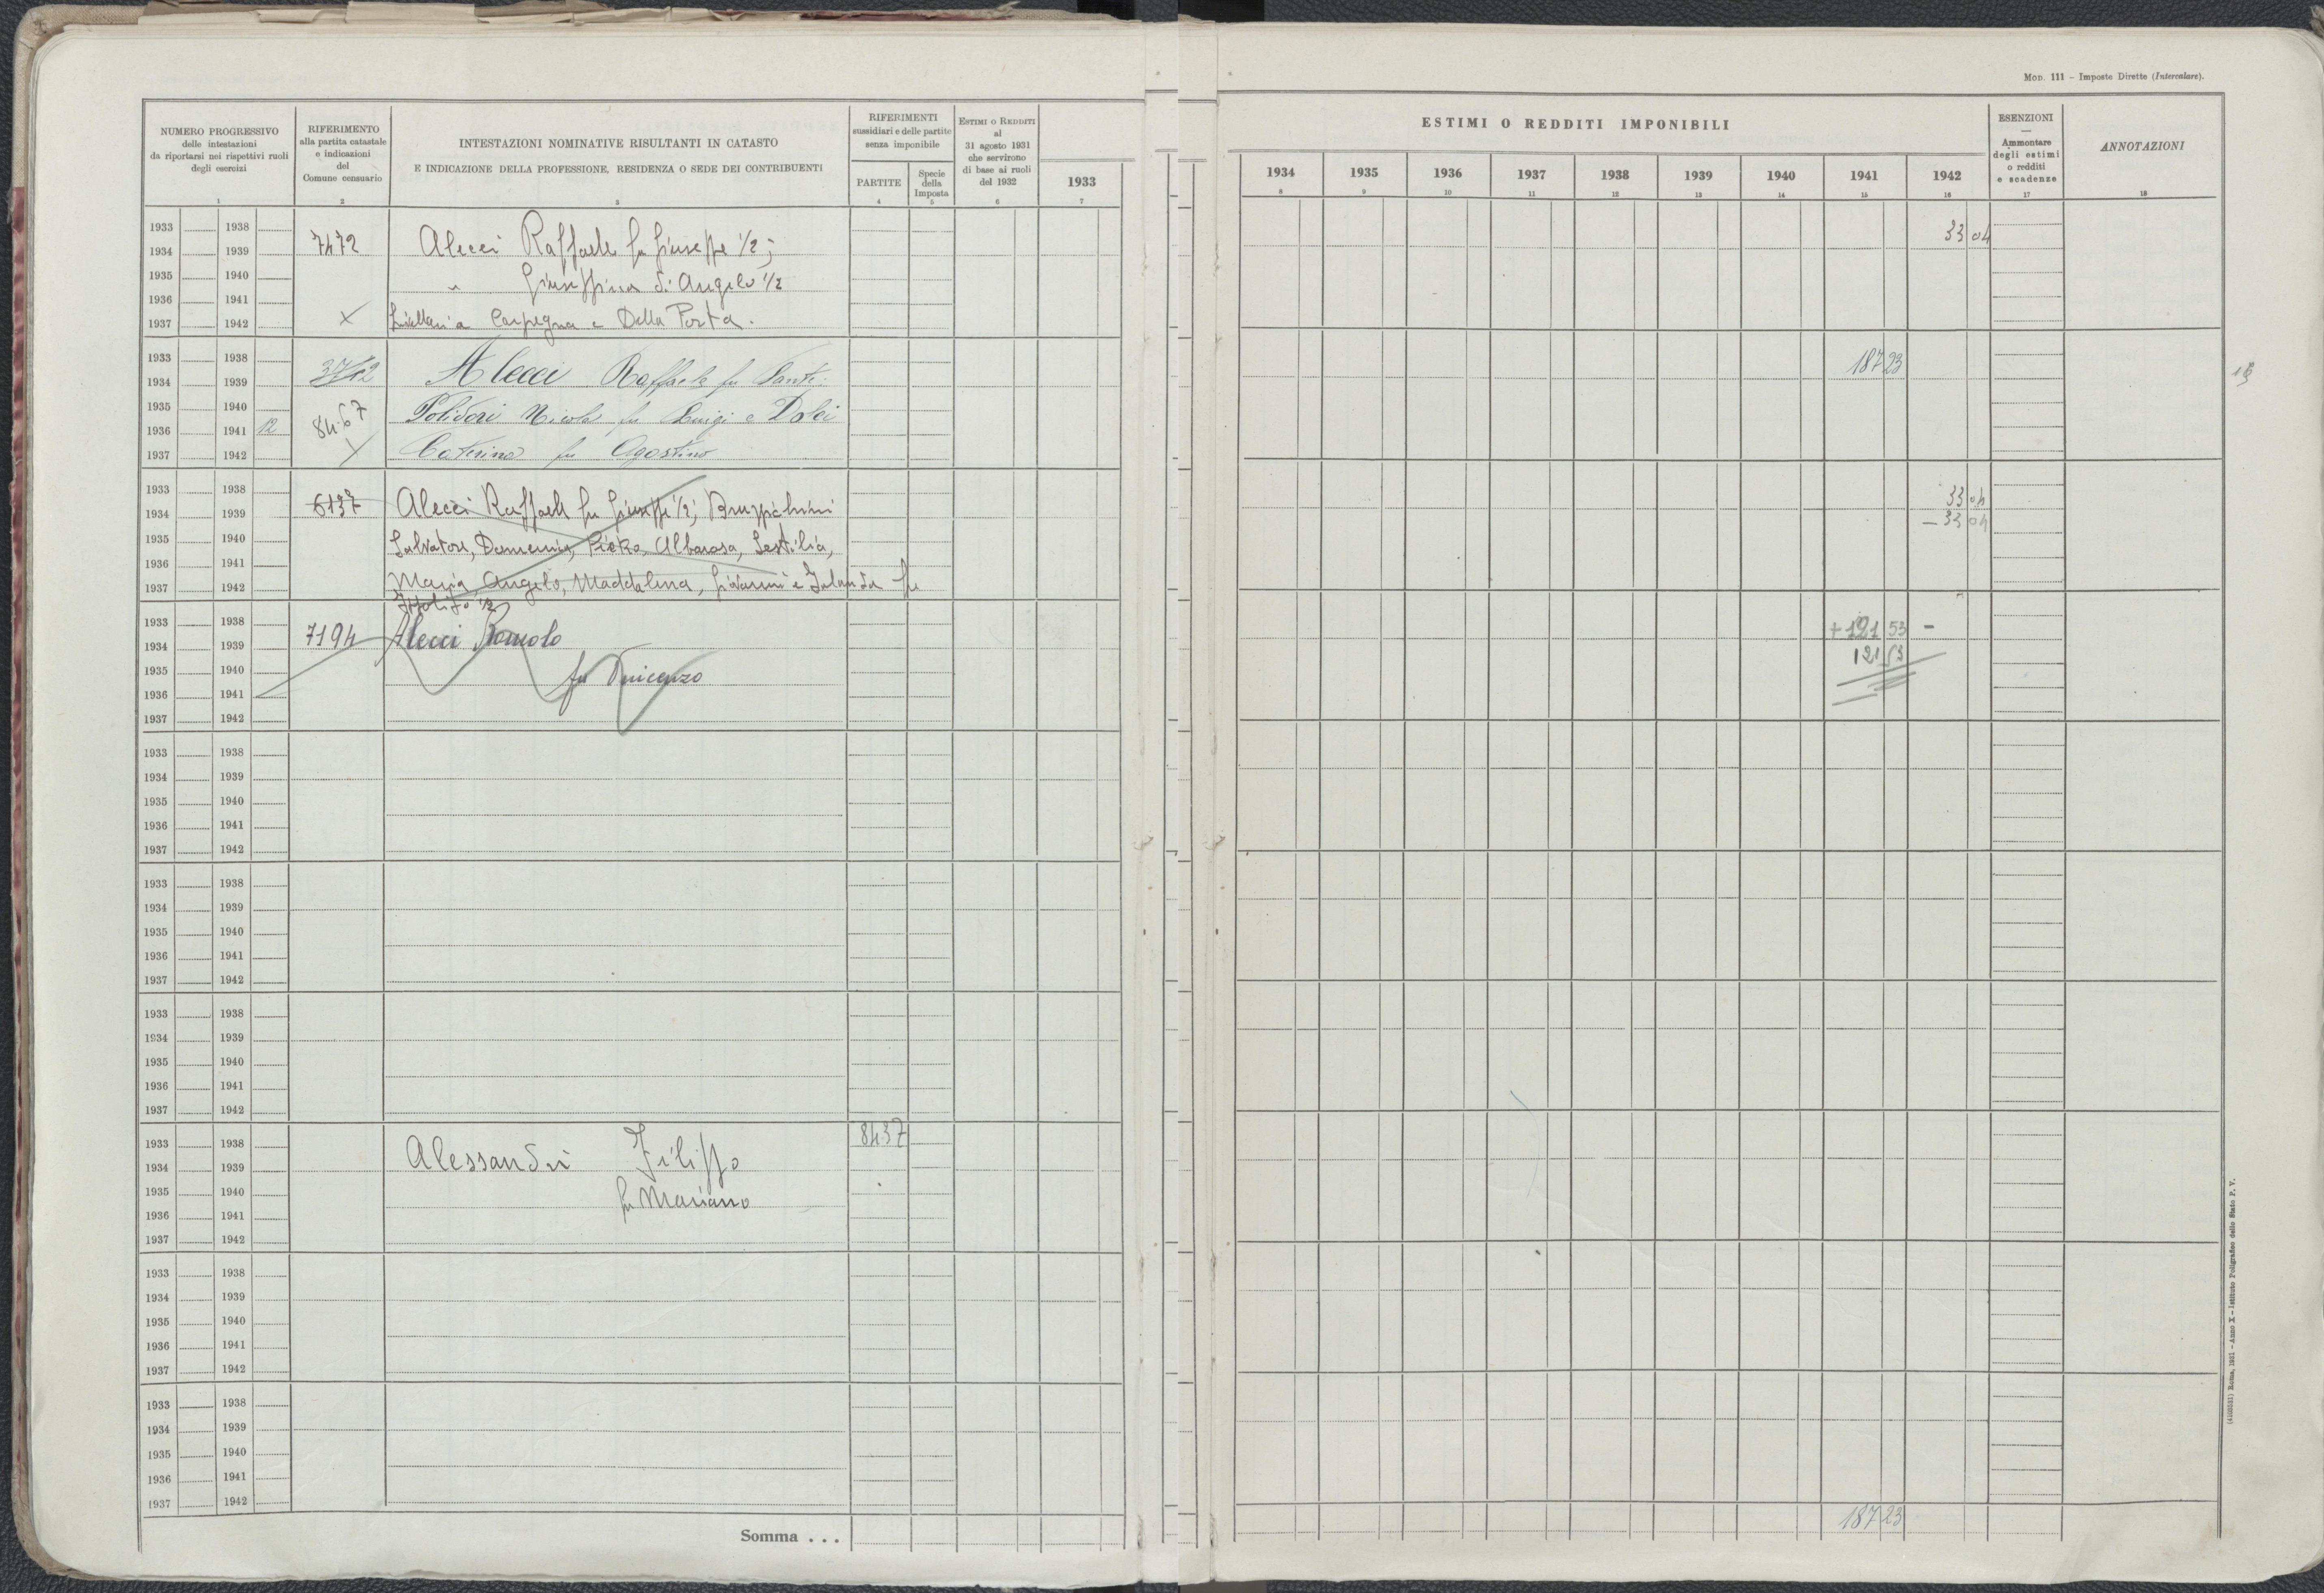 MOD. 111 – Imposte Dirette (Intercalare).
NUMERO PROGRESSIVO
delle intestazioni
da riportarsi nei rispettivi ruoli
degli esercizi
1
RIFERIMENTO
alla partita catastale
e indicazioni
del
Comune censuario
2
INTESTAZIONI NOMINATIVE RISULTANTI IN CATASTO
E INDICAZIONE DELLA PROFESSIONE, RESIDENZA O SEDE DEI CONTRIBUENTI
3
RIFERIMENTI
sussidiari e delle partite
senza imponibile
PARTITE
4
Specie
della
Imposta
5
ESTIMI O REDDITI
al
31 agosto 1931
che servirono
di base ai ruoli
del 1932
6
1933
7
ESTIMI O REDDITI IMPONIBILI
1934 1935 1936 1937 1938 1939 1940 1941 1942
8 9 10 11 12 13 14 15 16
ESENZIONI
—
Ammontare
degli estimi
o redditi
e scadenze
17
ANNOTAZIONI
18
1933 1938 33 04
1934 1939 7472 Alecci Raffaele fu Giuseppe 1/2;
1935 1940 " Giuseppina di Angelo 1/2
1936 1941
1937 1942 X Livellari a Carpegna e Della Porta.
1933 1938 187 23
1934 1939 3712 Alecci Raffaele fu Sante.
1935 1940 Polidori Nicola fu Luigi e Dolci
1936 1941 12 8467
1937 1942 X Caterina fu Agostino
1933 1938 33 04
1934 1939 6137 Alecci Raffaele fu Giuseppe 1/2; Bruzzichini
– 33 04
1935 1940 Salvatore, Domenico, Pietro, Albarosa, Sestilia,
1936 1941
1937 1942 Maria Angelo, Maddalena, Giovanni e Jolanda fu
Ippolito 1/2
1933 1938 + 121 53 –
1934 1939 7194 Alecci Romolo
121 53
1935 1940 fu Vincenzo
1936 1941
1937 1942
1933 1938
1934 1939
1935 1940
1936 1941
1937 1942
1933 1938
1934 1939
1935 1940
1936 1941
1937 1942
1933 1938
1934 1939
1935 1940
1936 1941
1937 1942
1933 1938 8437
1934 1939 Alessandri Filippo
1935 1940 fu Mariano
1936 1941
1937 1942
1933 1938
1934 1939
1935 1940
1936 1941
1937 1942
1933 1938
1934 1939
1935 1940
1936 1941
1937 1942
Somma . . . 187 23
Roma, 1931 – Anno X – Istituto Poligrafico dello Stato P. V.